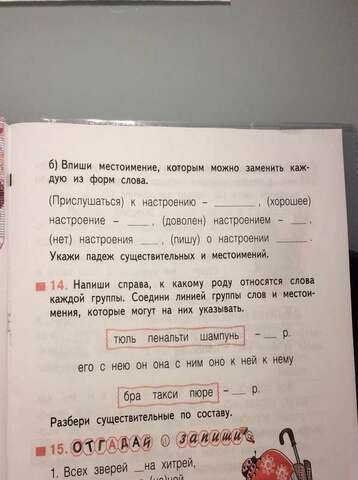 б) Впиши местоимение, которым можно заменить каж-
дую из форм слова.
(Прислушаться) к настроению – ______ , (хорошее)
настроение – ____ , (доволен) настроением – ___ ,
(нет) настроения ___ , (пишу) о настроении _____ .
Укажи падеж существительных и местоимений.
14. Напиши справа, к какому роду относятся слова
каждой группы. Соедини линией группы слов и местои-
мения, которые могут на них указывать.
тюль пенальти шампунь – __ р.
его с нею он она с ним оно к ней к нему
бра такси пюре – __ р.
Разбери существительные по составу.
15. ОТГАДАЙ и запиши
1. Всех зверей _на хитрей,